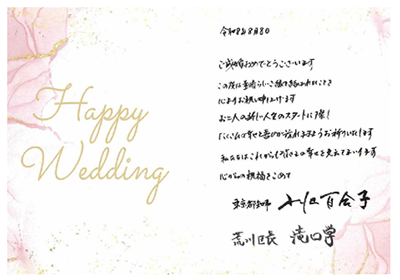 Happy
Wedding
令和8年8月8日
ご結婚おめでとうございます
この度は素晴らしいご縁で結ばれましたこと
心よりお祝い申し上げます
お二人の新しい人生のスタートに際し
たくさんの幸せと喜びが訪れますようお祈りいたします
私たちはこれからも皆さまの幸せを支えてまいります
心からの祝福をこめて
東京都知事 小池百合子
荒川区長 滝口学